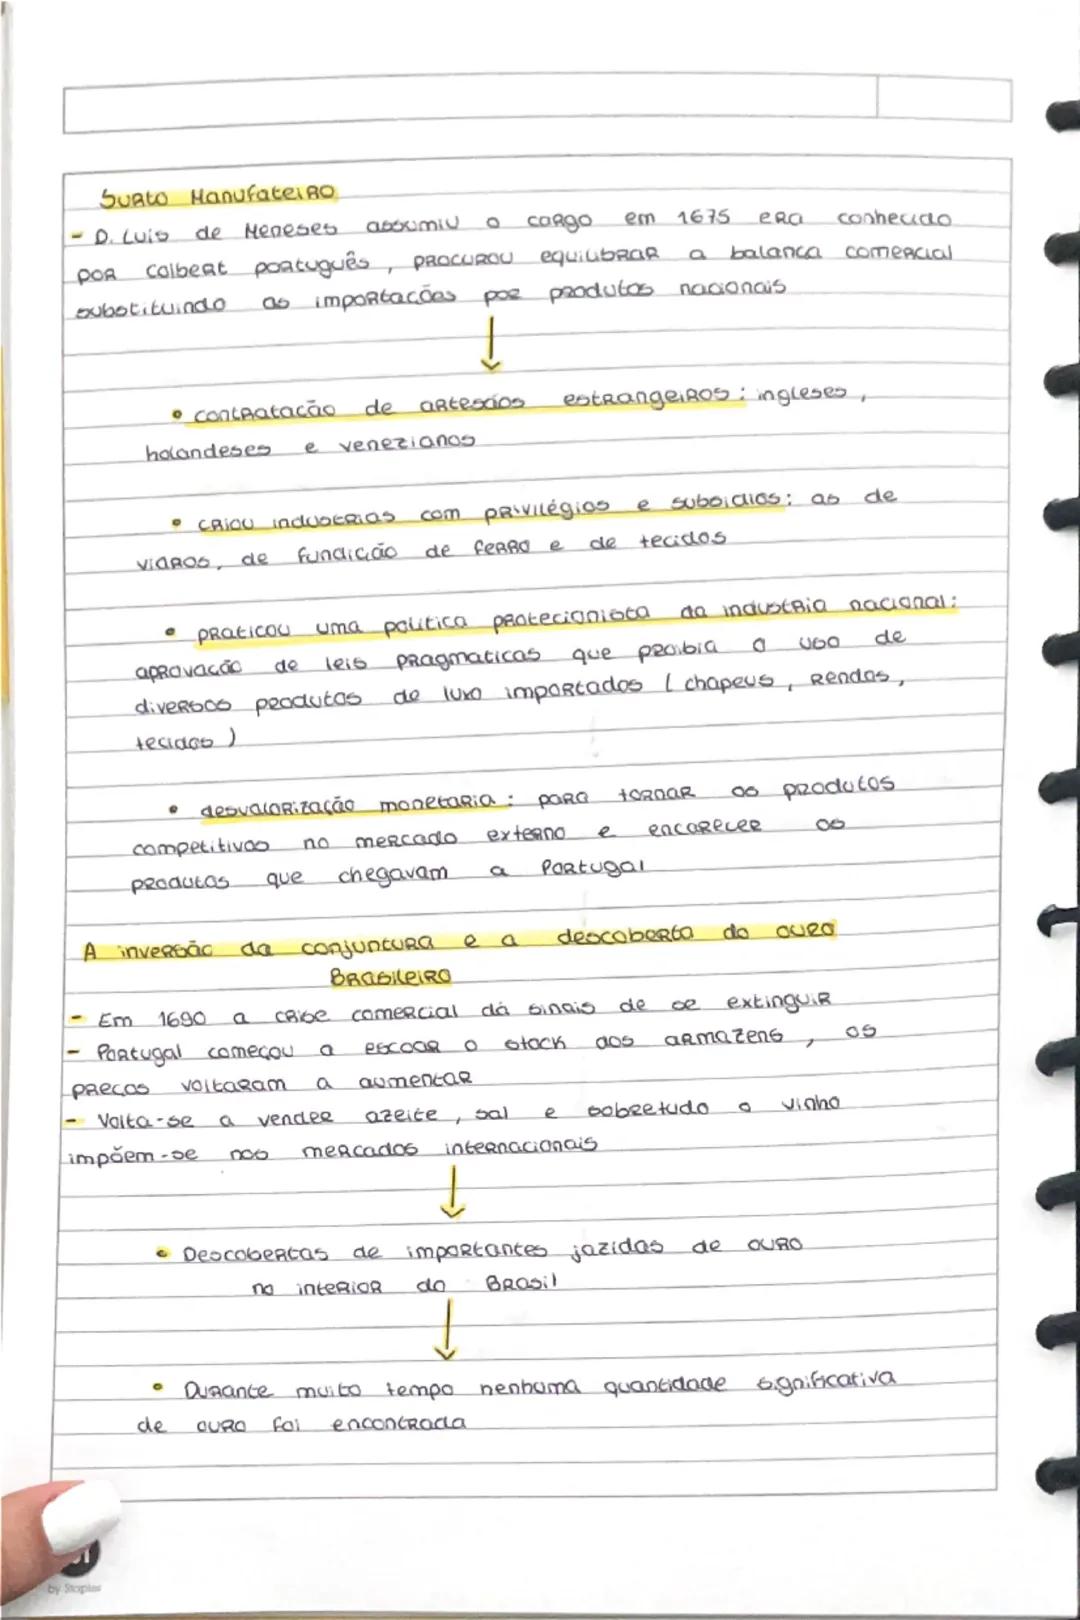 Surto Manufateiro
- D. Luis de Meneses assumiu o cargo em 1675 era conhecido
por Colbert português, procurou equilibrar a balança comercial
substituindo as importações por produtos nacionais
↓
• contratação de artesãos estrangeiros: ingleses,
holandeses e venezianos
• criou industrias com privilégios e subsidios: as de
vidros, de fundição de ferro e de tecidos
• praticou uma politica protecionista da industria nacional:
aprovação de leis pragmaticas que proibia o uso de
diversos produtos de luxo importados (chapeus, rendas,
tecidos)
• desvalorização monetaria: para tornar os produtos
competitivos no mercado externo e encarecer os
produtos que chegavam a Portugal
A inversão da conjuntura e a descoberta do ouro
Brasileiro
- Em 1690 a crise comercial dá sinais de se extinguir
- Portugal começou a escoar o stock dos armazens, os
preços voltaram a aumentar
- Volta-se a vender azeite, sal e sobretudo o vinho
impõem-se nos mercados internacionais
↓
• Descobertas de importantes jazidas de ouro
no interior do Brasil
↓
• Durante muito tempo nenhuma quantidade significativa
de ouro foi encontrada
by Staples